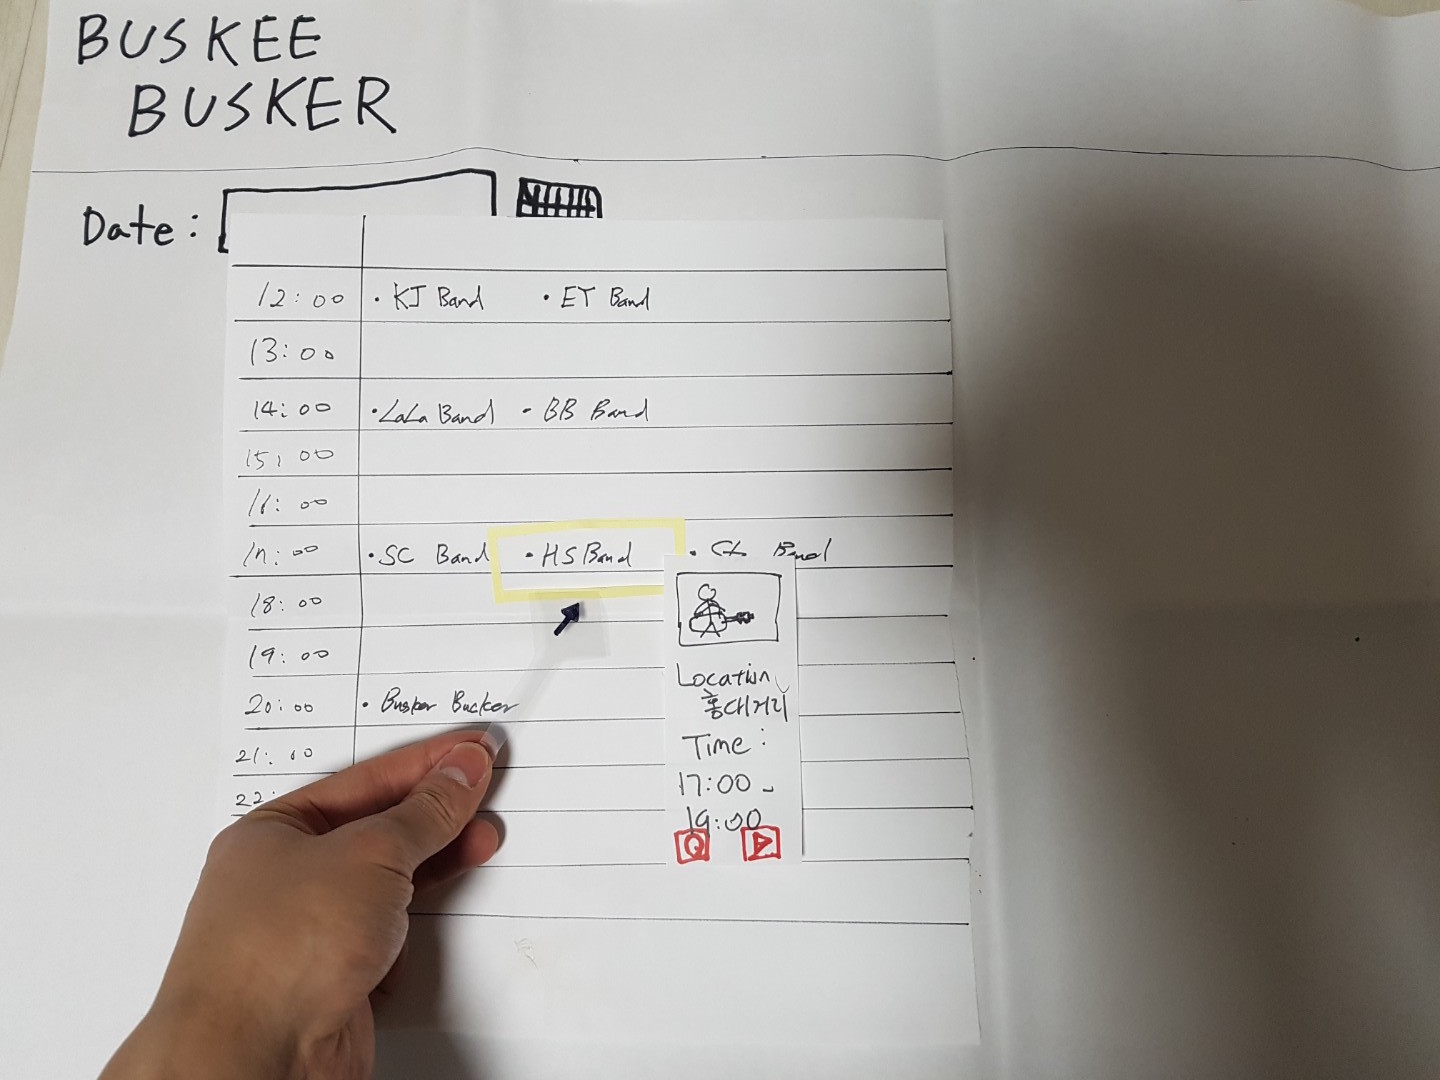 BUSKEE
BUSKER
Date:
12:00 • KJ Band • EY Band
13:00
14:00 • LaLa Band • BB Band
15:00
16:00
17:00 • SC Band • HS Band • Band
18:00
19:00
20:00 • Busker Bucker
21:00
22:
Location
홍대거리
Time:
17:00 -
19:00